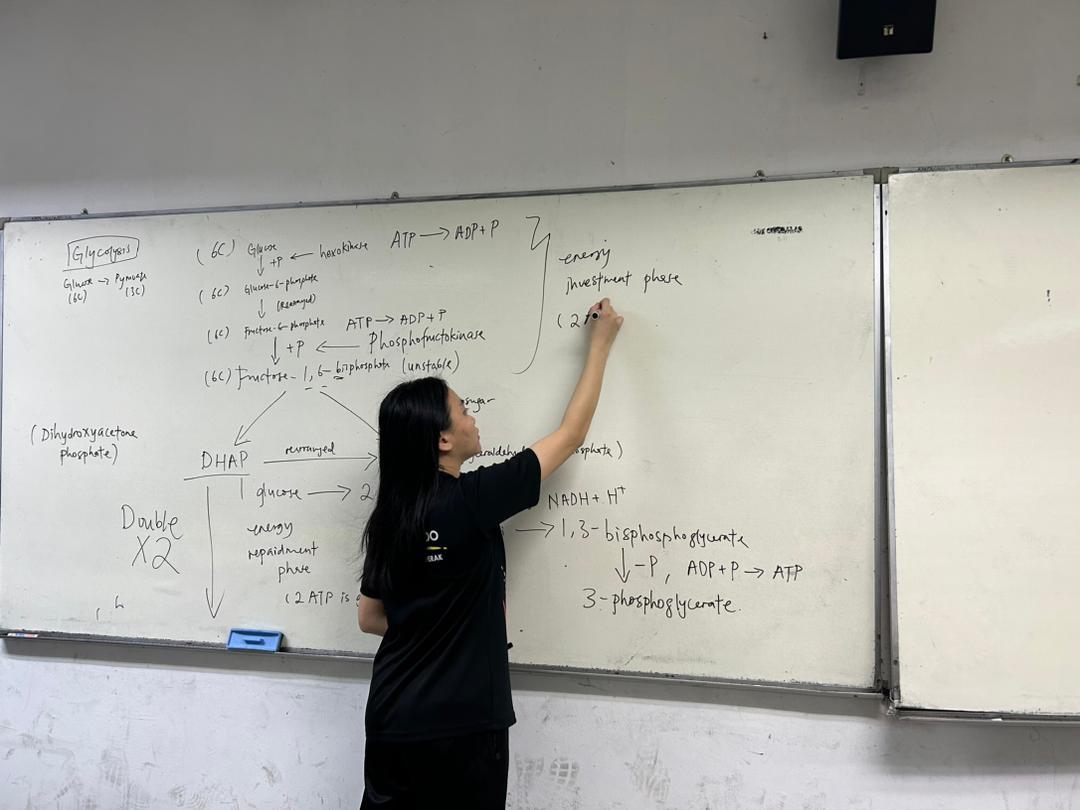 Glycolysis
Glucose → Pyruvate
(6C) (3C)
(6C) Glucose
+P ← hexokinase
ATP → ADP + P
(6C) Glucose-6-phosphate
(Rearranged)
(6C) Fructose-6-phosphate
ATP → ADP + P
+P ← Phosphofructokinase
(6C) Fructose-1,6-bisphosphate (unstable)
energy
investment phase
(2
sugar
(Dihydroxyacetone
phosphate)
DHAP
rearranged
1 glucose → 2
Double
X2
energy
repaidment
phase
(2 ATP is
NADH + H⁺
→ 1,3-bisphosphoglycerate
-P, ADP+P → ATP
3-phosphoglycerate.
ERAK